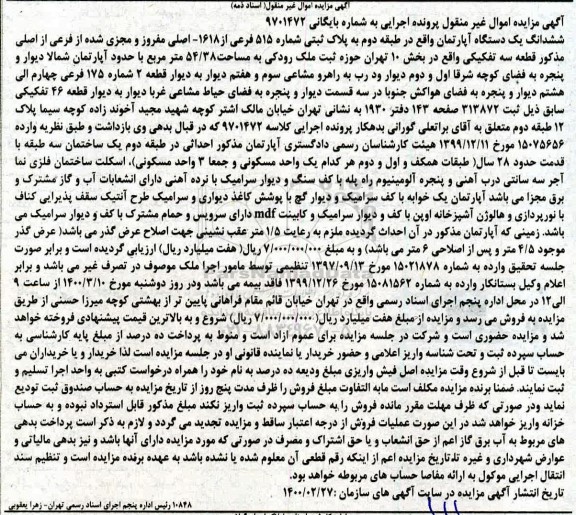 آگهی مزایده اموال غیر منقول (اسناد ذمه)
آگهی مزایده اموال غیر منقول پرونده اجرایی به شماره بایگانی ۹۷۰۱۴۷۲
ششدانگ یک دستگاه آپارتمان واقع در طبقه دوم به پلاک ثبتی شماره ۵۱۵ فرعی از۱۶۱۸- اصلی مفروز و مجزی شده از فرعی از اصلی
مذکور قطعه سه تفکیکی واقع در بخش ۱۰ تهران حوزه ثبت ملک رودکی به مساحت۵۴/۳۸ متر مربع با حدود آپارتمان شمالا دیوار و
پنجره به فضای کوچه شرقا اول و دوم دیوار ود رب به راهرو مشاعی سوم و هفتم دیوار به دیوار قطعه ۲ شماره ۱۷۵ فرعی چهارم الی
هشتم دیوار و پنجره به فضای هواکش جنوبا در سه قسمت دیوار و پنجره به فضای حیاط مشاعی غربا دیوار به دیوار قطعه ۴۶ تفکیکی
سابق ذیل ثبت ۳۱۳۸۷۲ صفحه ۱۴۳ دفتر ۱۹۳۰ به نشانی تهران خیابان مالک اشتر کوچه شهید مجید آخوند زاده کوچه سیما پلاک
۱۲ طبقه دوم متعلق به آقای براتعلی گورانی بدهکار پرونده اجرایی کلاسه ۹۷۰۱۴۷۲ که در قبال بدهی وی بازداشت و طبق نظریه وارده
۱۵۰۷۵۶۵۶ مورخ ۱۳۹۹/۱۲/۱۱ هیئت کارشناسان رسمی دادگستری آپارتمان مذکور احداثی در طبقه دوم یک ساختمان سه طبقه با
قدمت حدود ۲۸ سال( طبقات همکف و اول و دوم هر کدام یک واحد مسکونی و جمعا ۳ واحد مسکونی)، اسکلت ساختمان فلزی نما
آجر سه سانتی درب آهنی و پنجره آلومینیوم راه پله با کف سنگ و دیوار سرامیک با نرده آهنی دارای انشعابات آب و گاز مشترک و
برق مجزا می باشد آپارتمان یک خوابه با کف سرامیک و دیوار گچ با پوشش کاغذ دیواری و سرامیک طرح آنتیک سقف پذیرایی کناف
با نورپردازی و هالوژن آشپزخانه اوپن با کف و دیوار سرامیک و کابینت mdf دارای سرویس و حمام مشترک با کف و دیوار سرامیک می
باشد. زمینی که آپارتمان مذکور در آن احداث گردیده ملزم به رعایت ۱/۵ متر عقب نشینی جهت اصلاح عرض گذر می باشد( عرض گذر
موجود ۴/۵ متر و پس از اصلاحی ۶ متر می باشد) و به مبلغ ۷/۰۰۰/۰۰۰/۰۰۰ ریال( هفت میلیارد ریال) ارزیابی گردیده است و برابر صورت
جلسه تحقیق وارده به شماره ۱۵۰۲۱۸۷۸ مورخ ۱۳۹۷/۰۹/۱۳ تنظیمی توسط مامور اجرا ملک موصوف در تصرف غیر می باشد و برابر
اعلام وکیل بستانکار وارده به شماره ۱۵۰۸۱۵۶۲ مورخ ۱۳۹۹/۱۲/۲۶ فاقد بیمه می باشد ودر روز دوشنبه مورخ ۱۴۰۰/۳/۱۰ از ساعت ۹
الی۱۲ در محل اداره پنجم اجرای اسناد رسمی واقع در تهران خیابان قائم مقام فراهانی پایین تر از بهشتی کوچه میرزا حسنی از طریق
مزایده به فروش می رسد و مزایده از مبلغ هفت میلیارد ریال( ۷/۰۰۰/۰۰۰/۰۰۰ ریال) شروع و به بالاترین قیمت پیشنهادی فروخته خواهد
شد و مزایده حضوری است و شرکت در جلسه مزایده برای عموم آزاد است و منوط به پرداخت ده درصد از مبلغ پایه کارشناسی به
حساب سپرده ثبت و تحت شناسه واریز اعلامی و حضور خریدار یا نماینده قانونی او در جلسه مزایده است لذا خریدار و یا خریداران می
بایست تا قبل از شروع وقت مزایده اصل فیش واریزی مبلغ ودیعه ده درصد به نام خود را همراه درخواست کتبی به واحد اجرا تسلیم و
ثبت نمایند. ضمنا برنده مزایده مکلف است مابه التفاوت مبلغ فروش را ظرف مدت پنج روز از تاریخ مزایده به حساب صندوق ثبت تودیع
نماید ودر صورتی که ظرف مهلت مقرر مانده فروش را به حساب سپرده ثبت واریز نکند مبلغ مذکور قابل استرداد نبوده و به حساب
خزانه واریز خواهد شد در این صورت عملیات فروش از درجه اعتبار ساقط و مزایده تجدید می گردد و لازم به ذکر است پرداخت بدهی
های مربوط به آب برق گاز اعم از حق انشعاب و یا حق اشتراک و مصرف در صورتی که مورد مزایده دارای آنها باشد و نیز بدهی مالیاتی و
عوارض شهرداری و غیره تا،تاریخ مزایده اعم از اینکه رقم قطعی آن معلوم شده یا نشده باشد به عهده برنده مزایده است و تنظیم سند
انتقال اجرایی موکول به ارائه مفاصا حساب های مربوطه خواهد بود.
تاریخ انتشار آگهی مزایده در سایت آگهی های سازمان :۱۴۰۰/۰۲/۲۷
۱۰۸۴۸ رئیس اداره پنجم اجرای اسناد رسمی تهران- زهرا یعقوبی